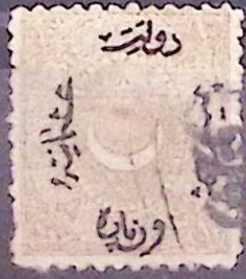 دولت
عثمانيه
اون پاره